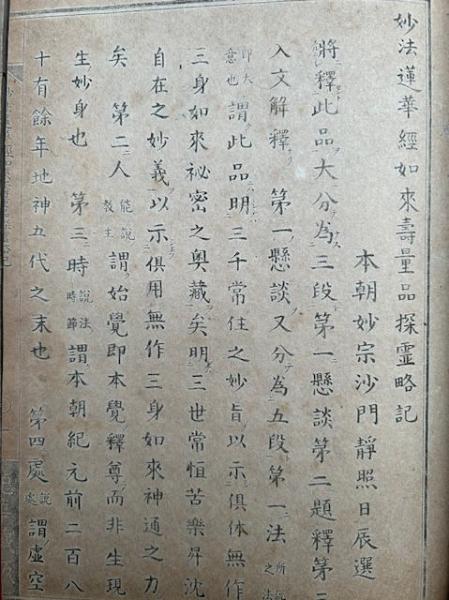 妙法蓮華經如來壽量品探靈略記
本朝妙宗沙門靜照日辰選
將釋此品大分為三段第一懸談第二題釋第三
入文解釋 第一懸談又分為五段第一法所說之法
即大意也謂此品明三千常住之妙旨以示俱体無作
三身如來祕密之奧藏矣明三世常恒苦樂昇沈
自在之妙義以示俱用無作三身如來神通之力
矣 第二人能說教主謂始覺即本覺釋尊而非生現
生妙身也 第三時說法時節謂本朝紀元前二百八
十有餘年地神五代之末也 第四處說處謂虛空